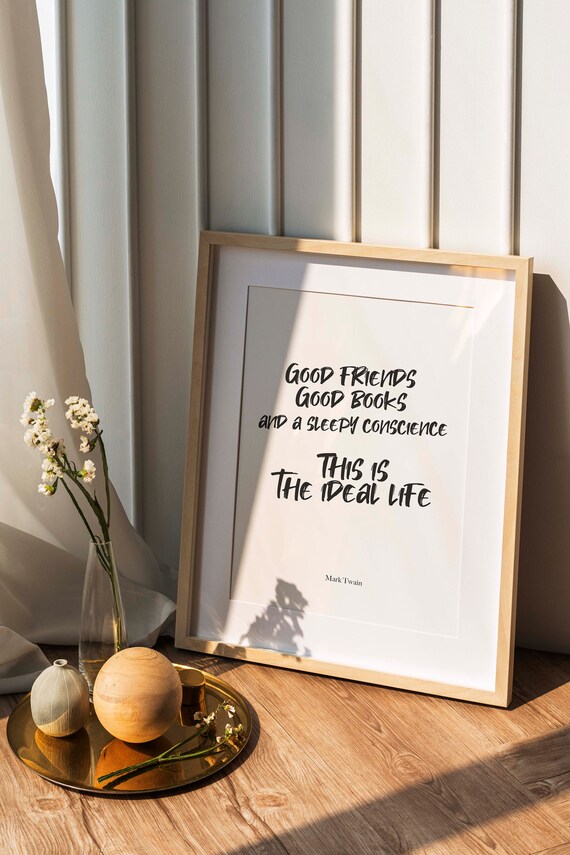 GOOD FRIENDS
GOOD BOOKS
AND A SLEEPY CONSCIENCE
THIS IS
THE IDEAL LIFE
Mark Twain